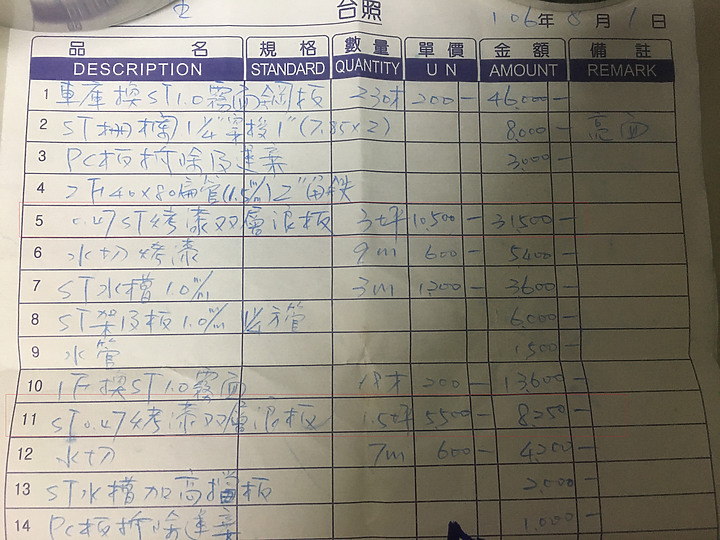 台照 106年8月1日
品名 規格 數量 單價 金額 備註
DESCRIPTION STANDARD QUANTITY U N AMOUNT REMARK
1 車庫換ST1.0霧面鋼板 230才 200- 46,000-
2 ST柵欄 1 1/4" 穿梭 1" (7.85x2) 8,000- 亮面
3 PC板拆除及運棄 3,000-
4 2F40x80扁管(1.5m/m) 2"角鉄
5 0.47ST烤漆双層浪板 3坪 10,500- 31500-
6 水切烤漆 9m 600- 5400-
7 ST水槽1.0m/m 3m 1,200- 3600-
8 ST架及板1.0m/m 1 1/4方管 6,000-
9 水管 1500-
10 1F換ST1.0霧面 才 200- 13,600-
11 ST0.47烤漆双層浪板 1.5坪 5,500- 8,250-
12 水切 7m 600- 4,200-
13 ST水槽加高擋板 2,000-
14 PC板拆除運棄 1,000-